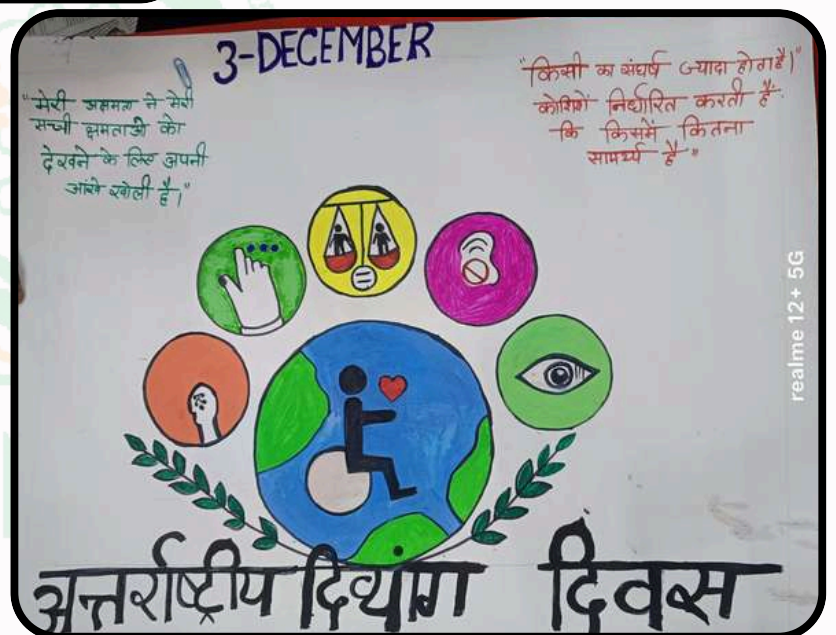 3-DECEMBER
"मेरी अक्षमता ने मेरी
सच्ची क्षमताओं को
देखने के लिए अपनी
आंखे खोली है।"
"किसी का संघर्ष ज्यादा होता है।"
कोशिशें निर्धारित करती है
कि किसमें कितना
सामर्थ्य है"
अन्तर्राष्ट्रीय दिव्यांग दिवस
realme 12+ 5G